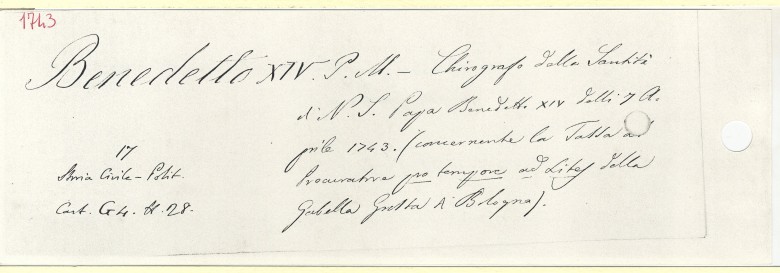 1743
Benedetto XIV. P. M. – Chirografo della Santità
di N. S. Papa Benedetto XIV delli 7 A-
prile 1743. (concernente la Tassa al
Procuratore pro tempore ad Lites della
Gabella Grossa di Bologna).
17
Storia Civile – Polit.
Cart. G 4. N. 28.